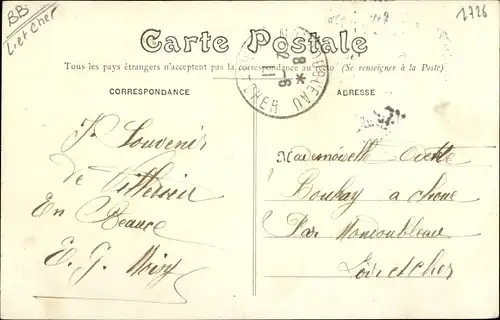 BB
Loir et Cher
2726
Carte Postale
Tous les pays étrangers n'acceptent pas la correspondance au recto (Se renseigner à la Poste)
CORRESPONDANCE
ADRESSE
OUBLEAU
8
CHER
Souvenir
de
En Beauce
E. G.
Mademoiselle Odette
Bouhay a choue
Par Mondoubleau
Loir et cher